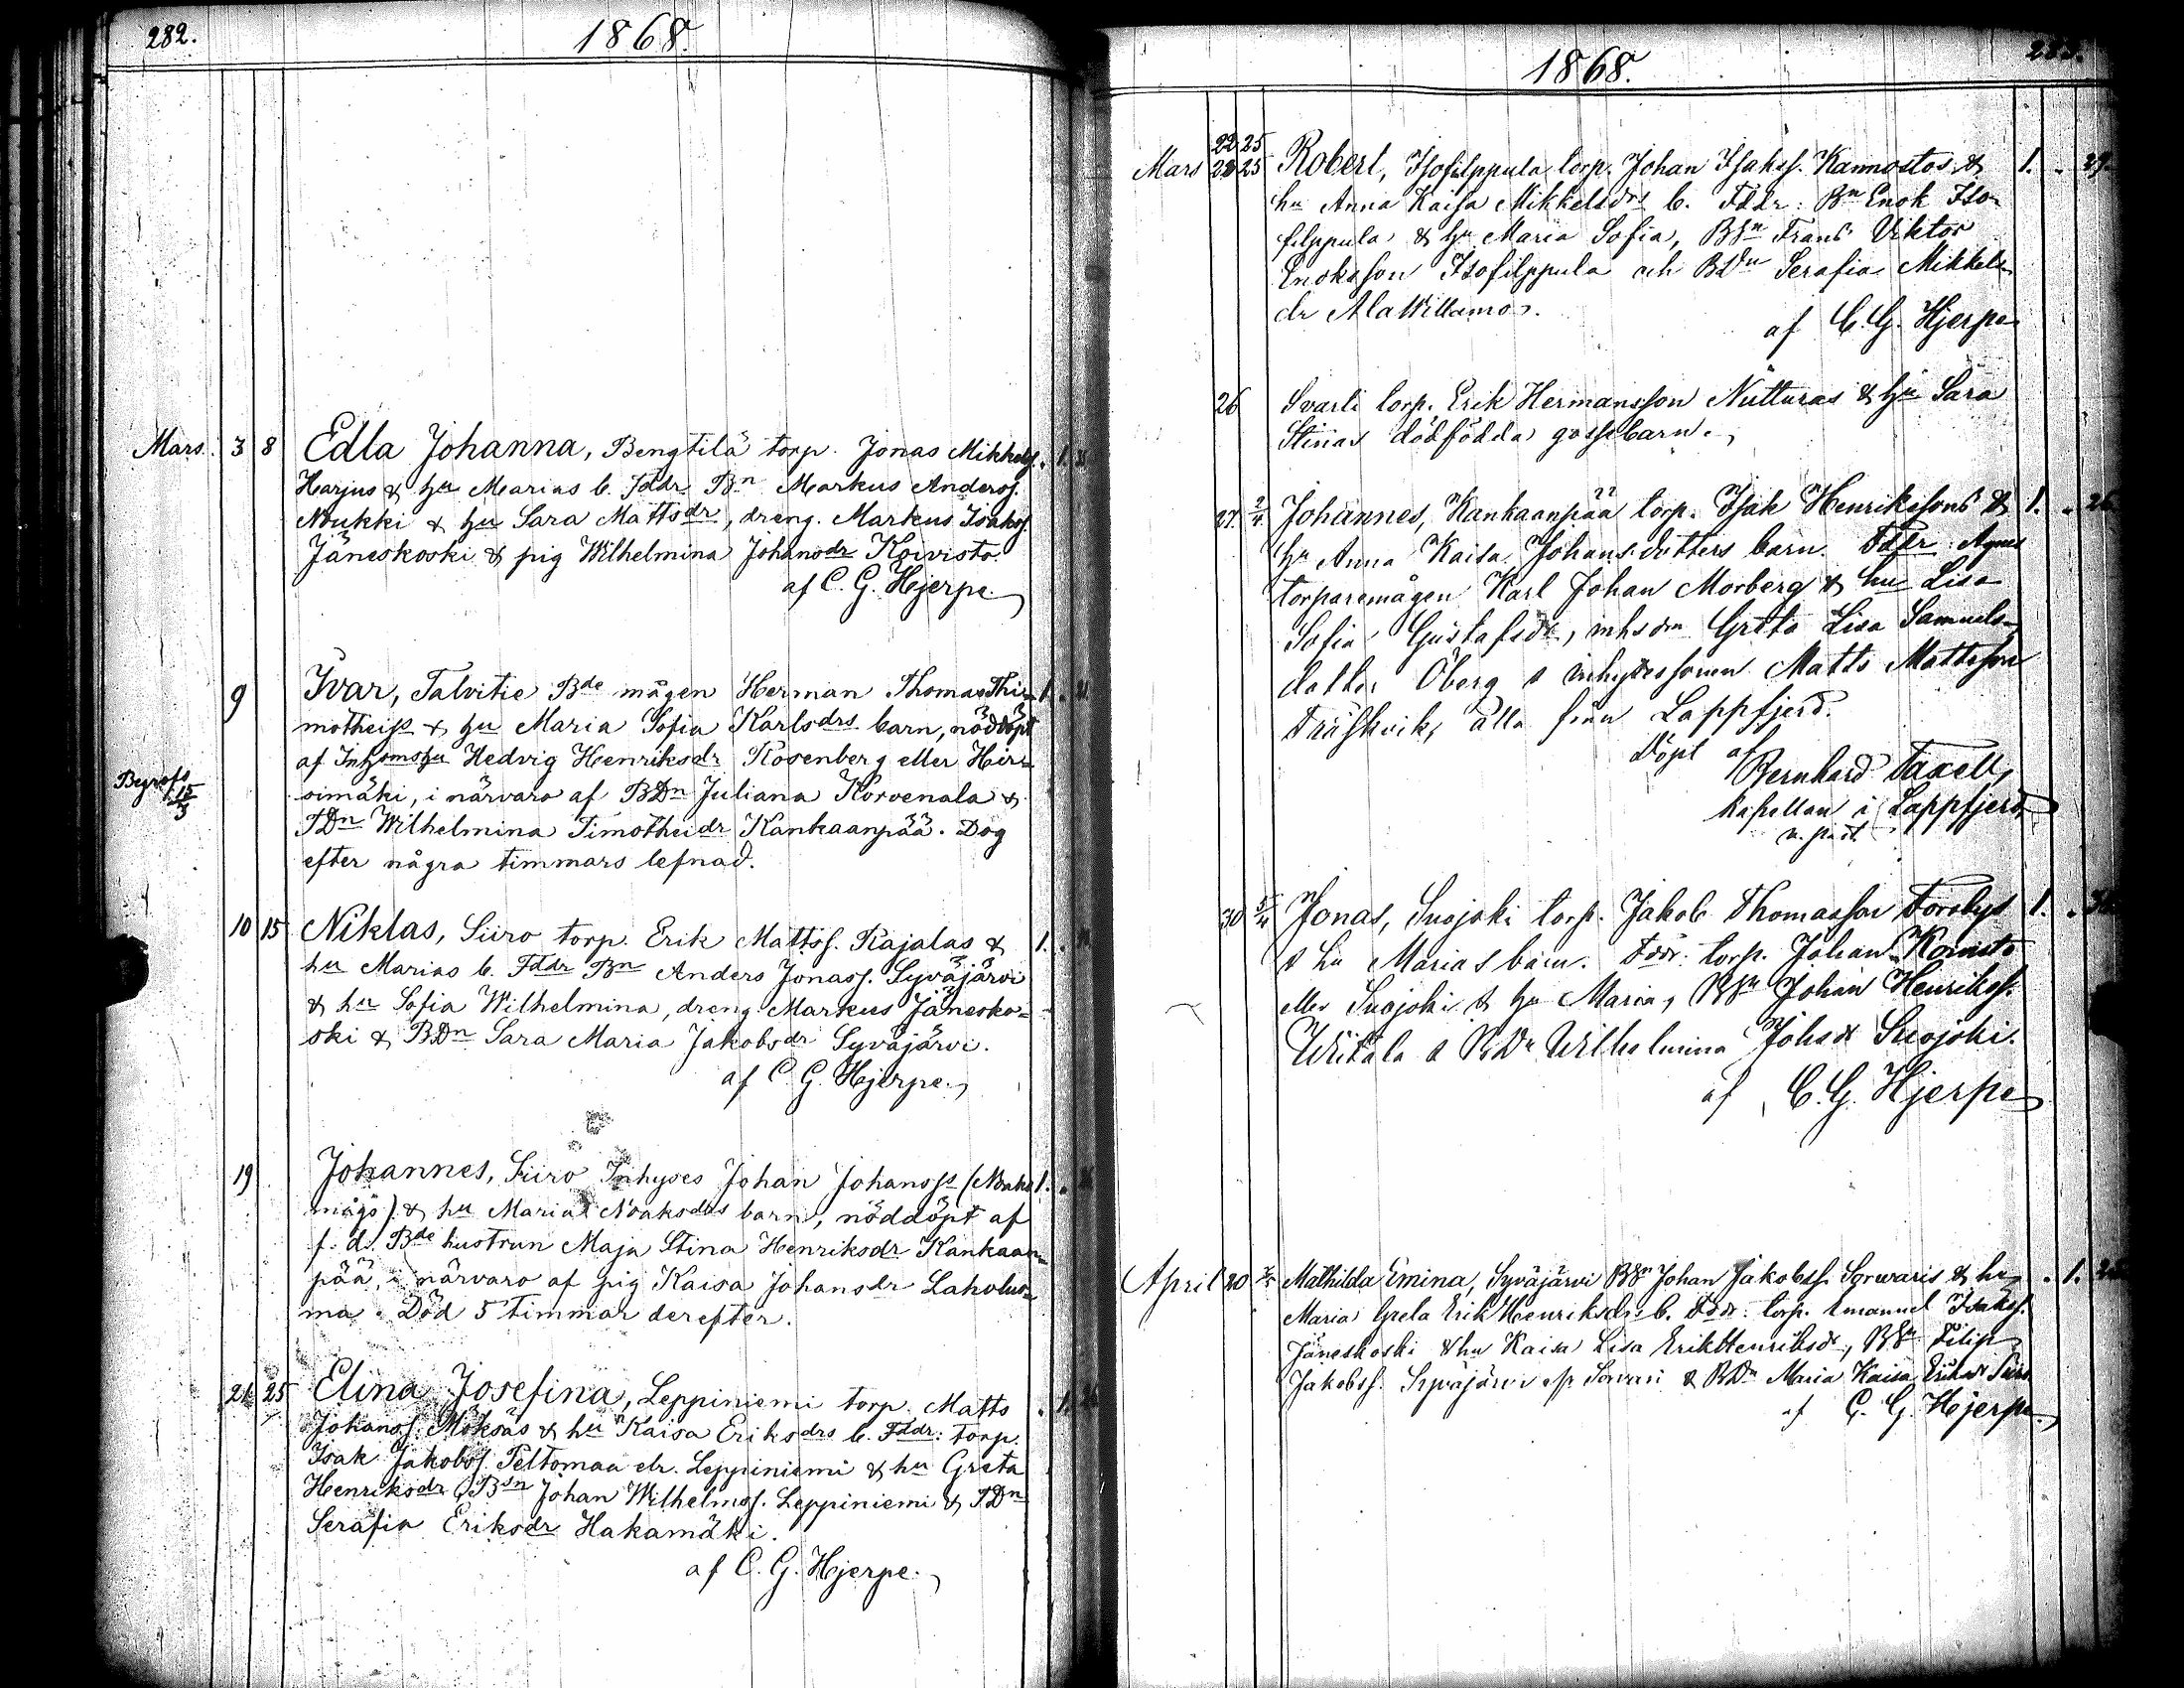 282.
1868.
Mars. 3 8 Edla Johanna, Bengtilä torp. Jonas Mikkelss. 1.
Harjus & hu Marias b. Fddr. Bn Markus Anderss.
Noukki & hu Sara Mattsdr, dreng. Markus Isakss.
Jäneskoski & pig Wilhelmina Johansdr Koivisto.
af C. G. Hjerpe.
9 Ivar, Talvitie Bde mågen Herman Thomas Thi- 1.
motheiss & hu Maria Sofia Karlsdrs barn, nöddöpt
af Inhysmshu Hedvig Henriksdr Rosenberg eller Hir-
simäki, i närvaro af BDn Juliana Korvenala &
TDn Wilhelmina Timotheidr Kankaanpää. Dog
efter några timmars lefnad.
Begrofs 15/3
10 15 Niklas, Siiro torp. Erik Mattss. Rajalas & 1.
hu Marias b. Fddr Bn Anders Jonass. Syväjärvi
& hu Sofia Wilhelmina, dreng Markus Jänesko-
ski & BDn Sara Maria Jakobsdr Syväjärvi.
af C. G. Hjerpe.
19 Johannes, Siiro Inhyses Johan Johanss 1.
& hu Maria Noaksdrs barn, nöddöpt af
f. d. Bde hustrun Maja Stina Henriksdr Kankaan-
pää, i närvaro af pig Kaisa Johansdr Laholuo-
ma. Död 5 timmar derefter.
21 25 Elina Josefina, Leppiniemi torp. Matts 1.
Johanss. Möksäs & hu Kaisa Eriksdrs b. Fddr: torp.
Isak Jakobss. Peltomaa elr. Leppiniemi & hu Greta
Henriksdr, BSn Johan Wilhelmss. Leppiniemi & TDn
Serafia Eriksdr Hakamäki.
af C. G. Hjerpe.
1868.
22 25
Mars 25 Robert, Isofilppula torp. Johan Isakss. Kannostos & 1. 29.
hu Anna Kaisa Mikkelsdrs b. Fddr: Bn Enok Iso-
filppula & hu Maria Sofia, BSn Frans Viktor
Enoksson Isofilppula och BDn Serafia Mikkels-
dr AlaWillamo.
af C. G. Hjerpe
26 Svarti torp. Erik Hermansson Nutturas & hu Sara
Stinas dödfödda gossebarn.
27. 2/4 Johannes, Kankaanpää torp. Isak Henrikssons & 1. 26
hu Anna Kaisa Johansdotters barn. Fddr
torparemågen Karl Johan Morberg & hu Lisa
Sofia Gustafsdr, inhsdn Greta Lisa Samuels-
dotter Öberg & inhysessonen Matts Mattsson
Träskvik, alla från Lappfjerd.
Döpt af
Bernhard Taxell,
Kapellan i Lappfjerd
30 5/4 Jonas, Suojoki torp. Jakob Thomasson Forsbys 1.
& hu Marias barn. Fddr: torp. Johan Koivisto
eller Suojoki & hu Maria, BSn Johan Henrikss.
Wiitala & BDn Wilhelmina Johsdr Suojoki.
af C. G. Hjerpe
April 20 Mathilda Emina, Syväjärvi BSn Johan Jakobss. Sorwaris & hu 1.
Maria Greta Erik Henriksdrs b. Fddr: torp. Emanuel Isakss.
Jäneskoski & hu Kaisa Lisa ErikHenriksdr, BSn Filip
Jakobss. Syväjärvi Sorvari & BDn Maria Kaisa Eriksdr
af C. G. Hjerpe